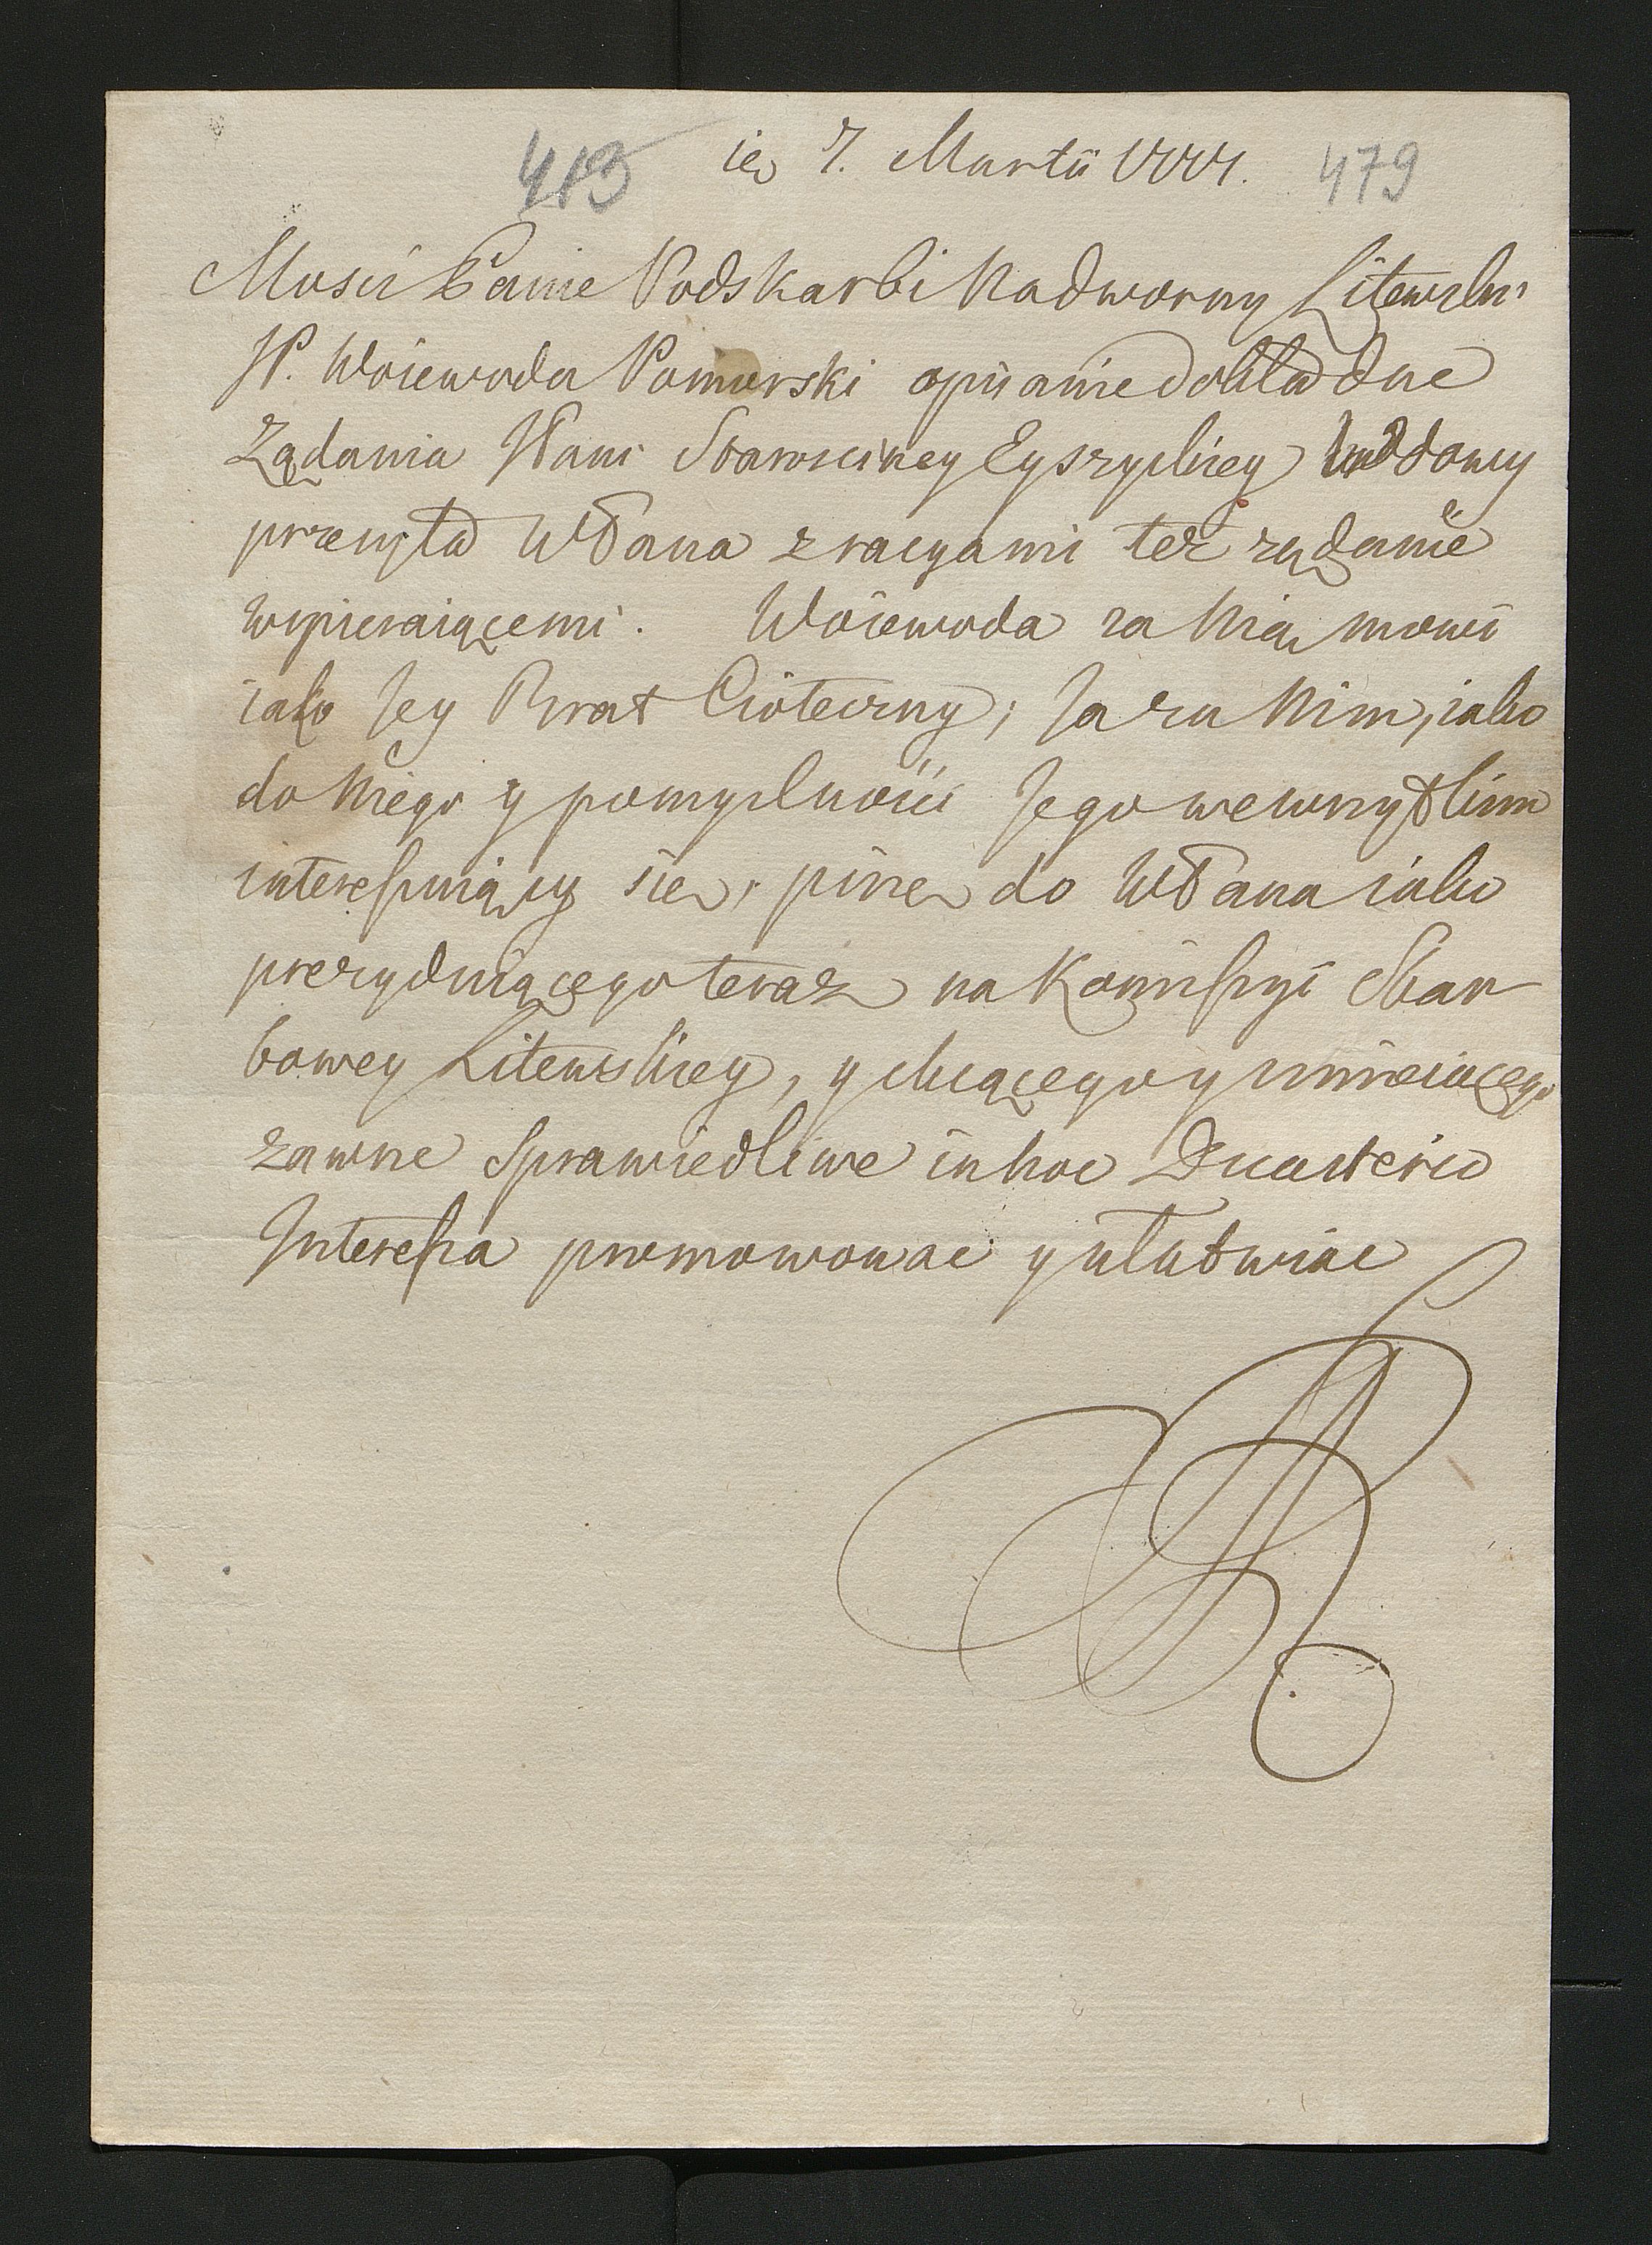 413 ie 7. Martii 1777. 479
Mosci Panie Podskarbi Nadworny Litewski
JP. Woiewoda Pomorski opisanie dokładne
Ządania JPani Starosciney Eyszyskiey Wdowy
przesyła WPana z racyami też ządanie
wspieraiącemi. Woiewoda za Nią mowi
iako Jey Brat Cioteczny; Ja za Nim, iako
do Niego y pomyslnosci Jego we wszystkim
interessuiący się, pisze do WPana iako
prezyduiącego teraz na Kommissyi Skar
bowey Litewskiey, y chcącego y umieiącego
zawsze sprawiedliwe in hoc Dicasterio
Interessa promowowac y ułatwiac